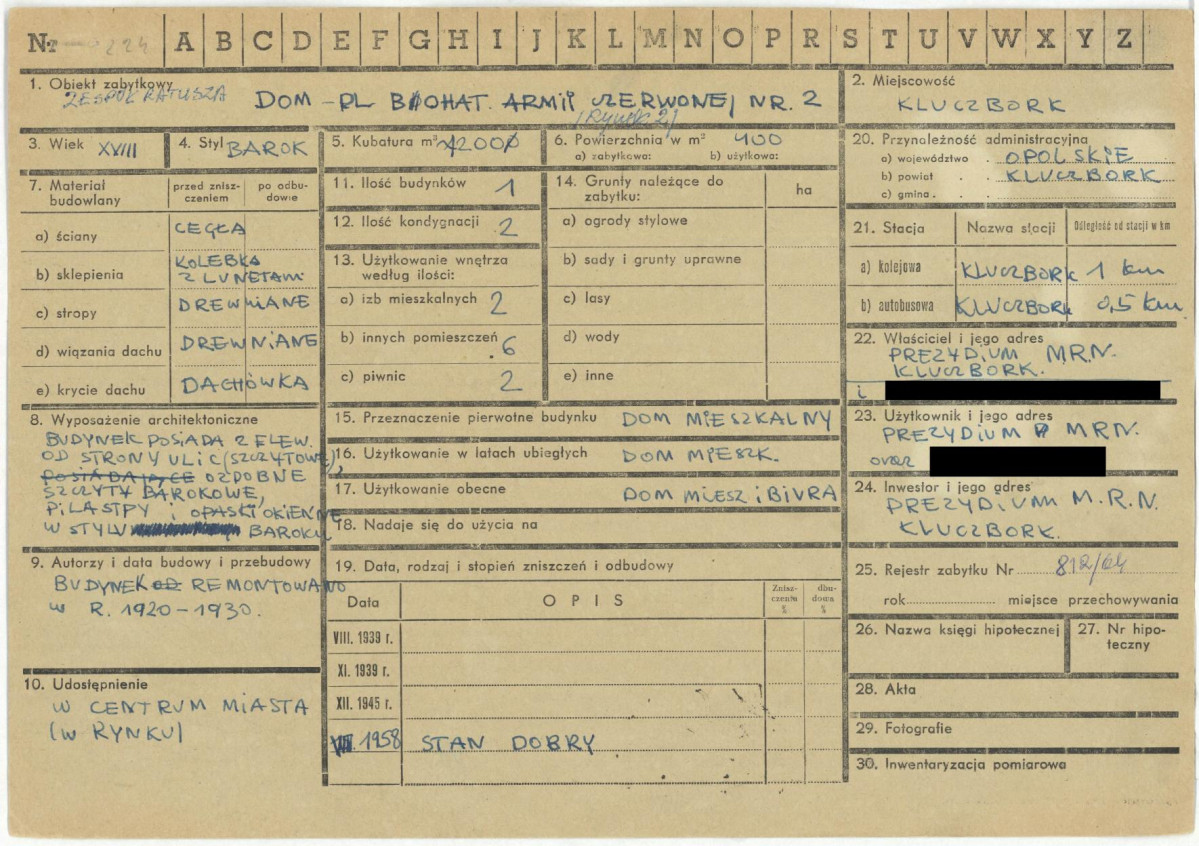 Nr 224 A B C D E F G H I J K L M N O P R S T U V W X Y Z
1. Obiekt zabytkowy
ZESPÓŁ RATUSZA
DOM - PL BOHAT. ARMII CZERWONEJ NR. 2
(Rynek 2)
2. Miejscowość
KLUCZBORK
3. Wiek XVIII
4. Styl BAROK
5. Kubatura m³ 2000
6. Powierzchnia w m² 400
a) zabytkowa: b) użytkowa:
20. Przynależność administracyjna
a) województwo . OPOLSKIE
b) powiat . . KLUCZBORK
c) gmina . .
7. Materiał budowlany
przed zniszczeniem
po odbudowie
a) ściany CEGŁA
b) sklepienia KOLEBKA
Z LUNETAMI
c) stropy DREWNIANE
d) wiązania dachu DREWNIANE
e) krycie dachu DACHÓWKA
11. Ilość budynków 1
12. Ilość kondygnacji 2
13. Użytkowanie wnętrza
według ilości:
a) izb mieszkalnych 2
b) innych pomieszczeń 6
c) piwnic 2
14. Grunty należące do
zabytku:
ha
a) ogrody stylowe
b) sady i grunty uprawne
c) lasy
d) wody
e) inne
21. Stacja Nazwa stacji Odległość od stacji w km
a) kolejowa KLUCZBORK 1 km
b) autobusowa KLUCZBORK 0,5 km
22. Właściciel i jego adres
PREZYDIUM M.R.N.
KLUCZBORK.
i
8. Wyposażenie architektoniczne
BUDYNEK POSIADA 2 ELEW.
OD STRONY ULIC (SZCZYTOWE),
POSIADAJĄCE OZDOBNE
SZCZYTY BAROKOWE,
PILASTRY i OPASKI OKIENNE
W STYLU BAROKU
15. Przeznaczenie pierwotne budynku DOM MIESZKALNY
16. Użytkowanie w latach ubiegłych DOM MIESZK.
17. Użytkowanie obecne DOM MIESZ i BIURA
18. Nadaje się do użycia na
23. Użytkownik i jego adres
PREZYDIUM MRN.
oraz
24. Inwestor i jego adres
PREZYDIUM M.R.N.
KLUCZBORK.
9. Autorzy i data budowy i przebudowy
BUDYNEK OD REMONTOWANO
W R. 1920-1930.
19. Data, rodzaj i stopień zniszczeń i odbudowy
Data OPIS Zniszczenia % dbudowa %
VIII. 1939 r.
XI. 1939 r.
XII. 1945 r.
1958 STAN DOBRY
25. Rejestr zabytku Nr 812/64
rok miejsce przechowywania
26. Nazwa księgi hipotecznej
27. Nr hipoteczny
28. Akta
29. Fotografie
30. Inwentaryzacja pomiarowa
10. Udostępnienie
W CENTRUM MIASTA
(W RYNKU)